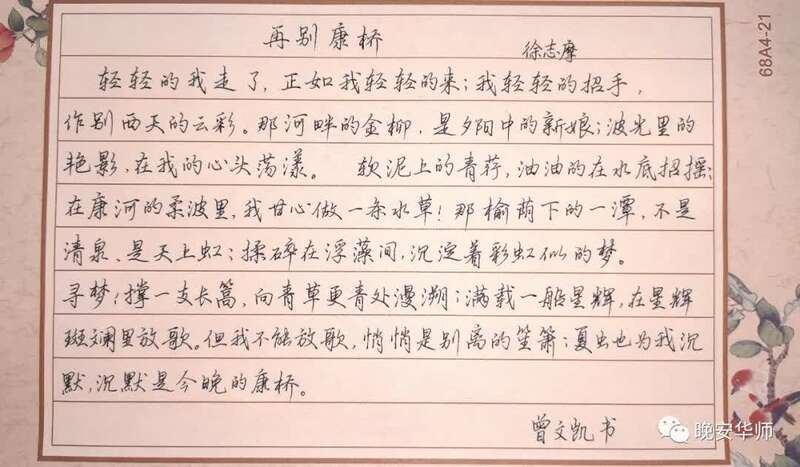 再别康桥
徐志摩
68A4-21
轻轻的我走了，正如我轻轻的来；我轻轻的招手，
作别西天的云彩。那河畔的金柳，是夕阳中的新娘；波光里的
艳影，在我的心头荡漾。 软泥上的青荇，油油的在水底招摇；
在康河的柔波里，我甘心做一条水草！那榆荫下的一潭，不是
清泉、是天上虹；揉碎在浮藻间，沉淀着彩虹似的梦。
寻梦？撑一支长篙，向青草更青处漫溯；满载一船星辉，在星辉
斑斓里放歌。但我不能放歌，悄悄是别离的笙箫；夏虫也为我沉
默，沉默是今晚的康桥。
曾文凯书
晚安华师